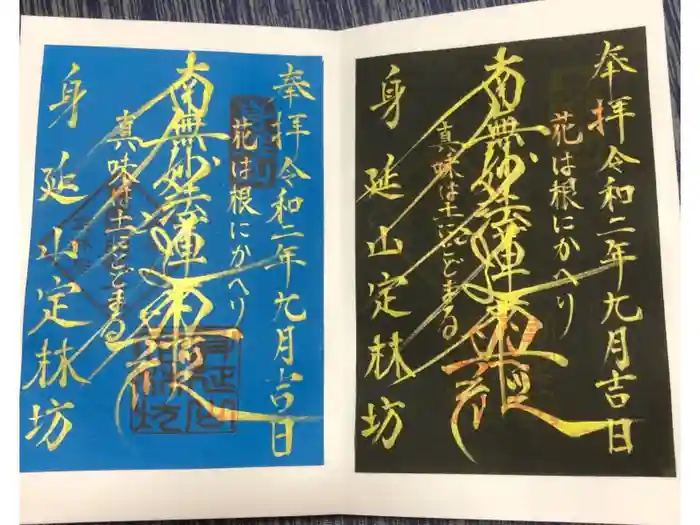 奉拝令和二年九月吉日
花は根にかへり
南無妙法蓮
真味は土にとどまる
身延山定林坊
奉拝令和二年九月吉日
花は根にかへり
南無妙法蓮
真味は土にとどまる
身延山定林坊